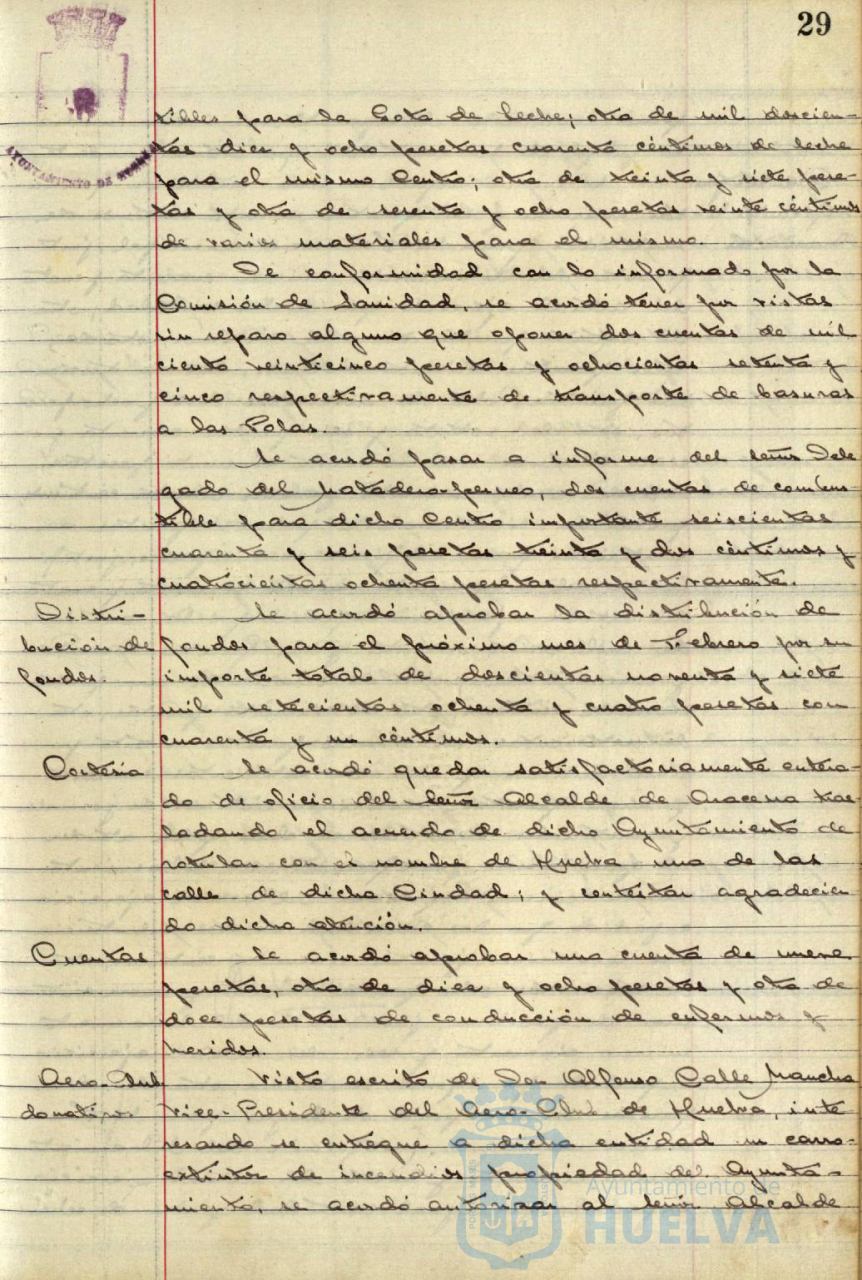 29
AYUNTAMIENTO DE HUELVA
tibles para la Gota de leche; otra de mil doscien-
tas diez y ocho pesetas cuarenta céntimos de leche
para el mismo Centro; otra de treinta y siete pese-
tas y otra de sesenta y ocho pesetas veinte céntimos
de varios materiales para el mismo.
De conformidad con lo informado por la
Comisión de Sanidad, se acordó tener por vistas
sin reparo alguno que oponer dos cuentas de mil
ciento veinticinco pesetas y ochocientas setenta y
cinco respectivamente de transporte de basuras
a las Polas.
Se acordó pasar a informe del señor Dele
gado del Matadero-perneo, dos cuentas de combus-
tible para dicho Centro importante seiscientas
cuarenta y seis pesetas treinta y dos céntimos y
cuatrocientas ochenta pesetas respectivamente.
Distri-
bución de
fondos.
Se acordó aprobar la distribución de
fondos para el próximo mes de Febrero por su
importe total de doscientas noventa y siete
mil setecientas ochenta y cuatro pesetas con
cuarenta y un céntimos.
Cortesía
Se acordó quedar satisfactoriamente entera-
do de oficio del señor Alcalde de Aracena tras-
ladando el acuerdo de dicho Ayuntamiento de
rotular con el nombre de Huelva una de las
calle de dicha Ciudad; y contestar agradecien
do dicha atención.
Cuentas
Se acordó aprobar una cuenta de nueve
pesetas, otra de diez y ocho pesetas y otra de
doce pesetas de conducción de enfermos y
heridos.
Aero-Club
donativo
Visto escrito de Don Alfonso Calle Mancha
Vice-Presidente del Aero-Club de Huelva, inte
resando se entregue a dicha entidad un carro-
extintor de incendios propiedad del Ayunta-
miento, se acordó autorizar al señor Alcalde
Ayuntamiento de
HUELVA